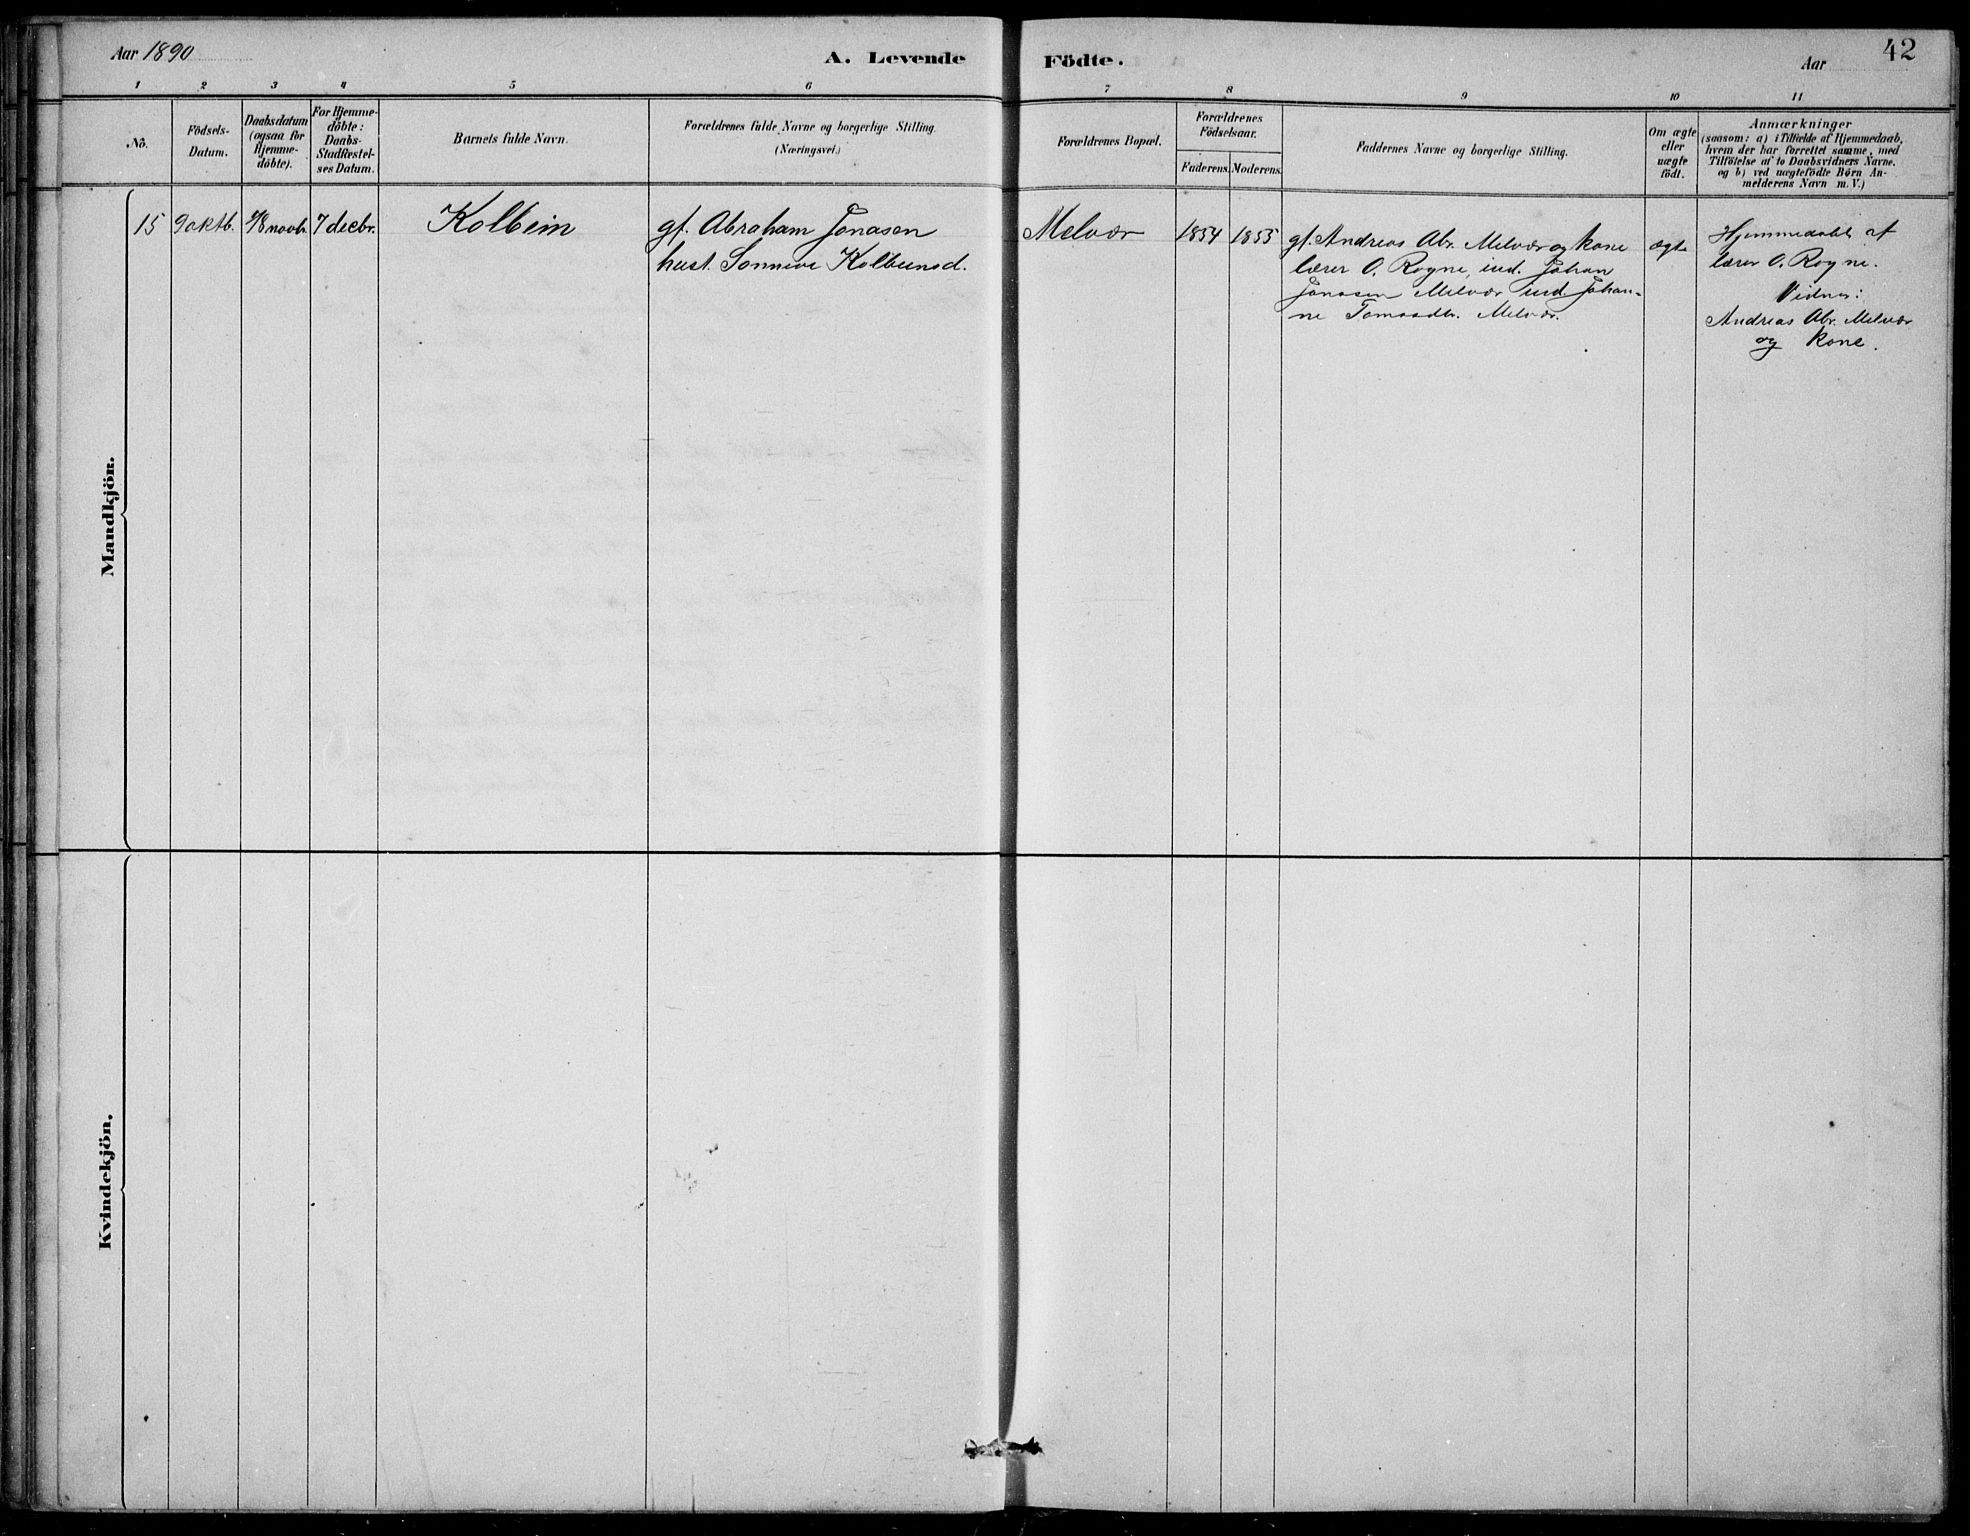 Aar 1890
A. Levende Födte.
Aar
42
1 2 3 4 5 6 7 8 9 10 11
No.
Födsels-
Datum.
Daabsdatum
(ogsaa for
Hjemme-
döbte).
For Hjemme-
döbte:
Daabs-
Stadfestel-
ses Datum.
Barnets fulde Navn.
Forældrenes fulde Navne og borgerlige Stilling.
(Næringsvei.)
Forældrenes Bopæl.
Forældrenes
Födselsaar.
Faderens. Moderens.
Faddernes Navne og borgerlige Stilling.
Om ægte
eller
uægte
födt.
Anmærkninger
(saasom: a) i Tilfælde af Hjemmedaab,
hvem der har forrettet samme, med
Tilföielse af to Daabsvidners Navne.
og b) ved uægtefödte Börn An-
melderens Navn m. V.)
Mandkjön.
15
9 oktb.
novb.
7 decbr.
Kolbein
gf. Abraham Jonasen
hust. Sonneve Kolbeinsd.
Melvær
1854
1855
gf. Andreas Abr. Melvær og kone
lærer O. Rogne, ind. Johan
Jonasen Melvær ind. Johan-
ne Melvær.
ægte
Hjemmedöbt af
lærer O. Rogne.
Vidner:
Andreas Abr. Melvær
og kone.
Kvindekjön.